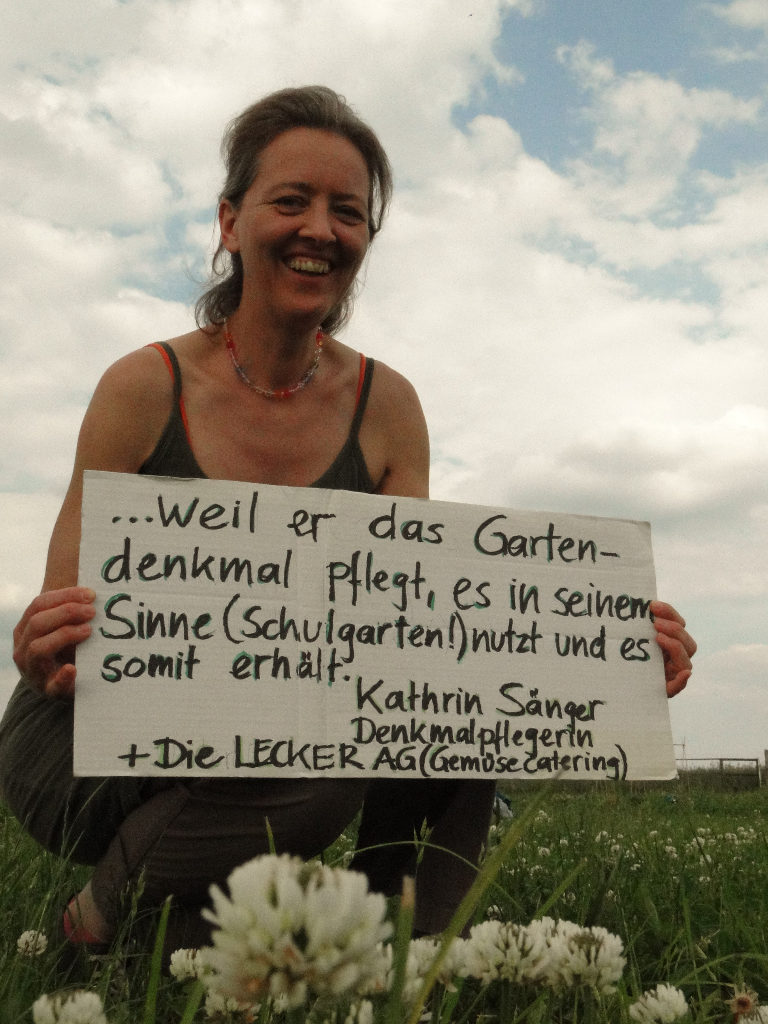 ...weil er das Garten-
denkmal pflegt, es in seinem
Sinne (Schulgarten!) nutzt und es
somit erhält.
Kathrin Sänger
Denkmalpflegerin
+ Die LECKER AG (Gemüsecatering)